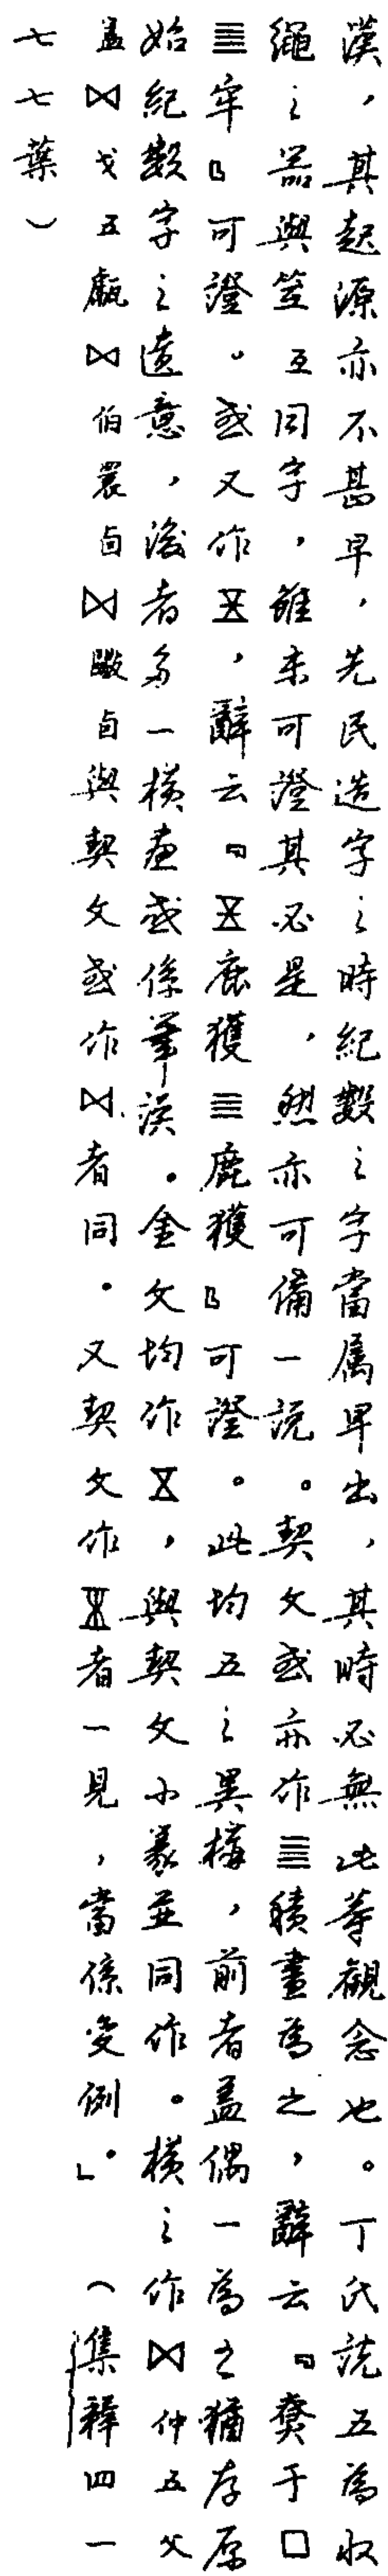 漢，其起源亦不甚早，先民造字之時紀數之字當属早出，其時必無此等觀念也。丁氏説五為收
繩之器與笠互同字，雖未可證其必是，然亦可備一説。契文或亦作𝍤積畫為之，辭云『尞于囗
𝍤牢』可證。或又作𠄡，辭云『𠄡鹿獲𝍤鹿獲』可證。此均五之異構，前者蓋偶一為之猶存原
始紀數字之遺意，後者多一橫畫或係筆誤。金文均作𠄡，與契文小篆並同作。橫之作⋈仲五父
盖⋈戈五甗⋈伯㬎卣⋈卣與契文或作⋈者同。又契文作者一見，當係变例」。（集釋四一
七七葉）